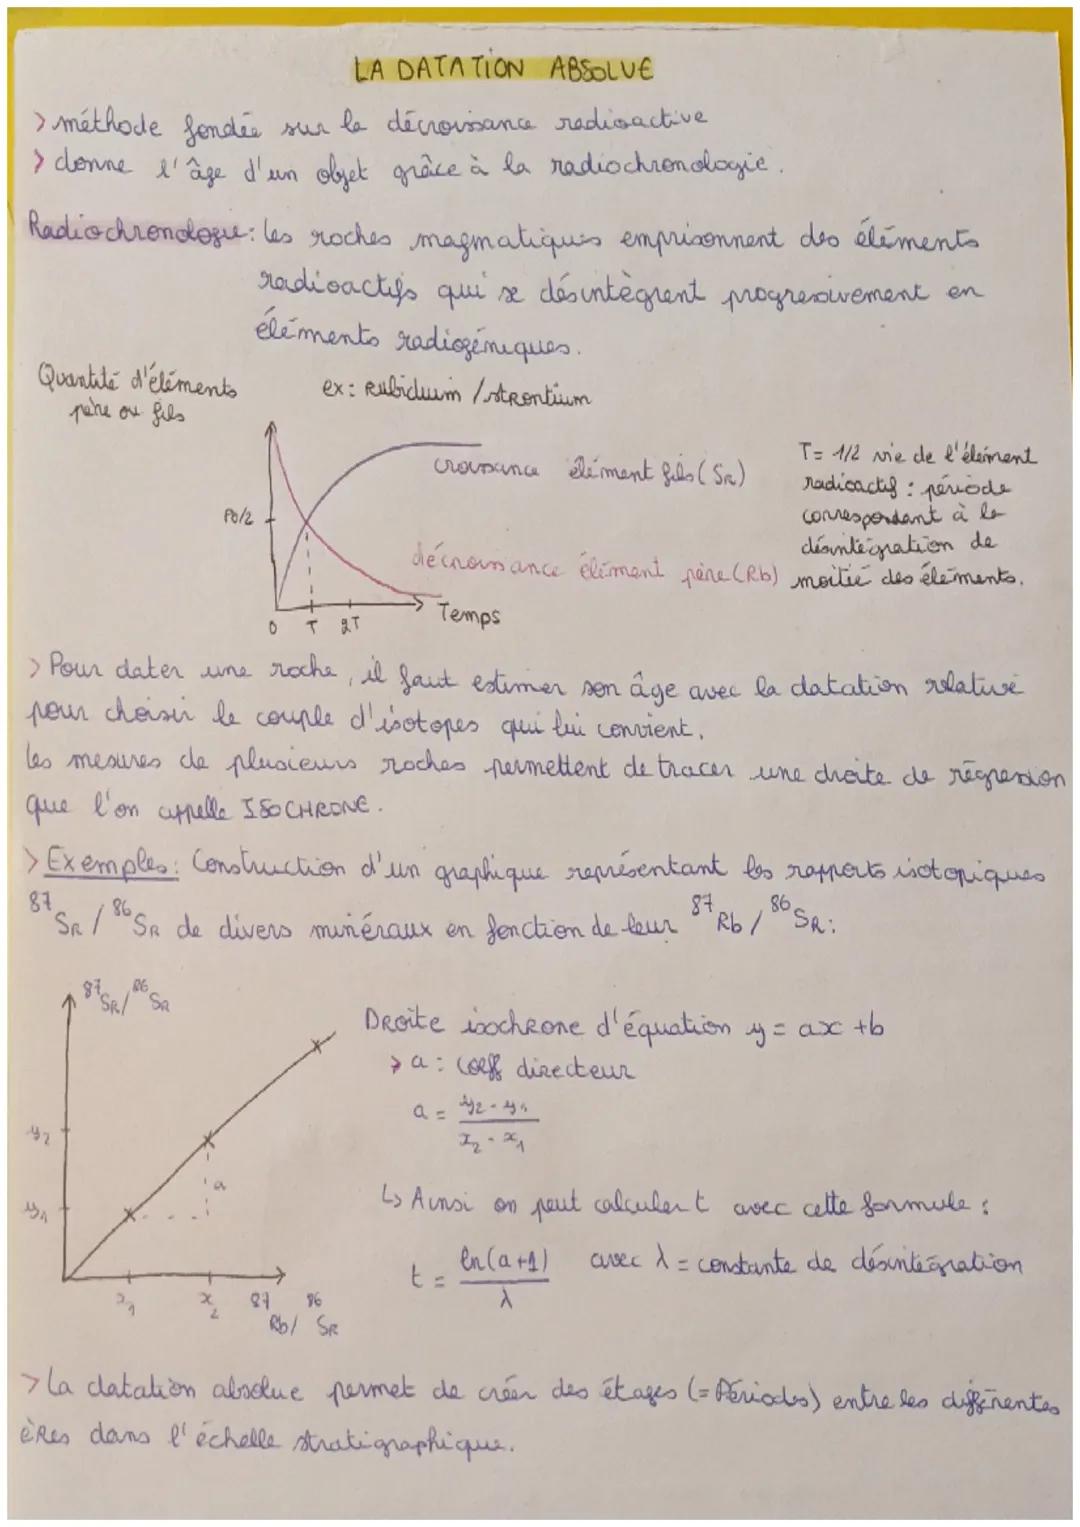 LA DATATION ABSOLUE
> méthode fondée sur la décroissance radioactive
> donne l'âge d'un objet grâce à la radiochronologie.
Radiochronologie: les roches magmatiques emprisonnent des éléments
radioactifs qui se désintègrent progressivement en
éléments radiogéniques.
Quantité d'éléments
père ou fils
ex: Rubidium / strontium
croissance élément fils (Sr)
P0/2
décroissance élément père (Rb)
0 T 2T
Temps
T= 1/2 vie de l'élément
radioactif : période
correspondant à la
désintégration de
moitié des éléments.
> Pour dater une roche, il faut estimer son âge avec la datation relative
pour choisir le couple d'isotopes qui lui convient.
Les mesures de plusieurs roches permettent de tracer une droite de régression
que l'on appelle ISOCHRONE.
> Exemples: Construction d'un graphique représentant les rapports isotopiques
⁸⁷Sr / ⁸⁶Sr de divers minéraux en fonction de leur ⁸⁷Rb / ⁸⁶Sr:
⁸⁷Sr / ⁸⁶Sr
y2
y1
a
x1 x2
⁸⁷Rb / ⁸⁶Sr
Droite isochrone d'équation y = ax + b
> a : coeff directeur
a = (y2 - y1) / (x2 - x1)
↳ Ainsi on peut calculer t avec cette formule :
t = ln(a+1) / λ avec λ = constante de désintégration
> La datation absolue permet de créer des étages (= Périodes) entre les différentes
ères dans l'échelle stratigraphique.